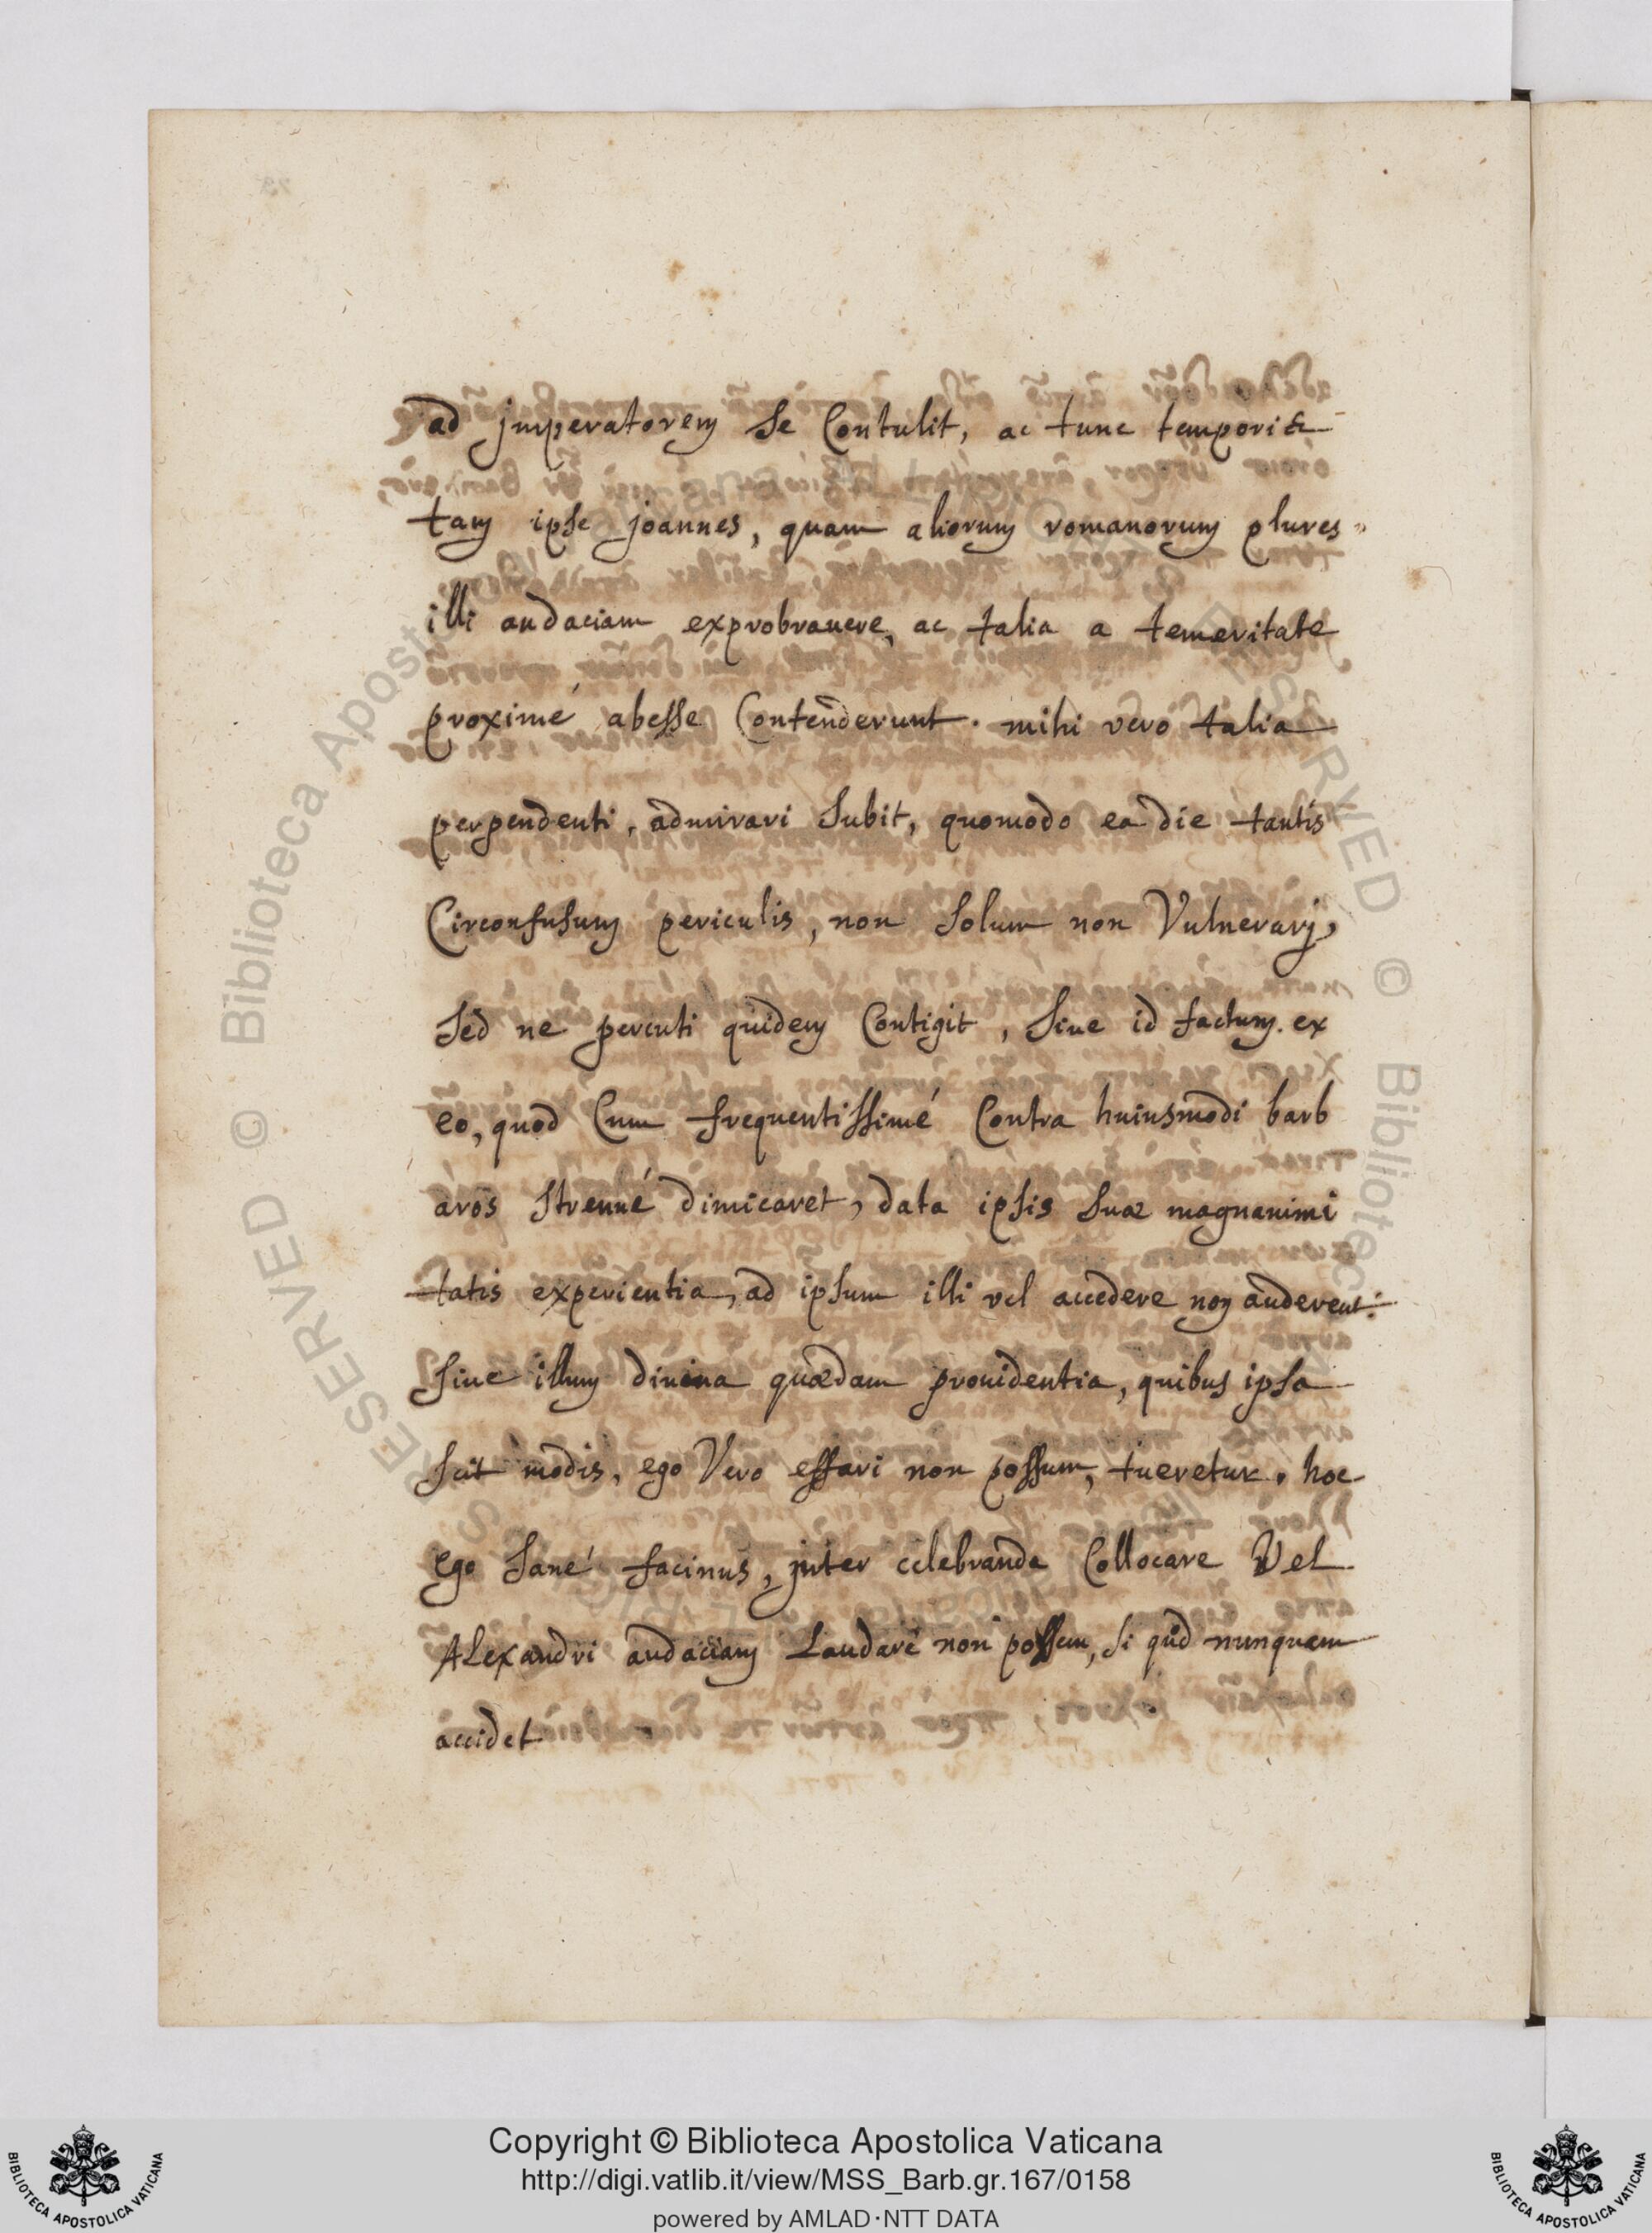 ad jmperatorem se Contulit, ac tunc temporis
tam ipse joannes, quam aliorum romanorum plures
illi audaciam exprobrauere, ac talia a temeritate
proximé abesse Contenderunt. mihi vero talia
perpendenti, admirari subit, quomodo ea die tantis
Circonfusum periculis, non solum non Vulnerarj,
sed ne percuti quidem Contigit, siue id factum ex
eo, quod Cum frequentissimé Contra huiusmodi barb
aros strenué dimicaret, data ipsis suae magnanimi
tatis experientia, ad ipsum illi vel accedere non auderent:
siue illum diuina quædam prouidentia, quibus ipsa
scit modis, ego Vero effari non possum, tueretur. hoc
ego sané facinus, jnter celebranda Collocare Vel
ALexandri audaciam Laudare non possem, si quid nunquam
accidet
Copyright © Biblioteca Apostolica Vaticana
http://digi.vatlib.it/view/MSS_Barb.gr.167/0158
powered by AMLAD·NTT DATA
BIBLIOTECA APOSTOLICA VATICANA
BIBLIOTECA APOSTOLICA VATICANA